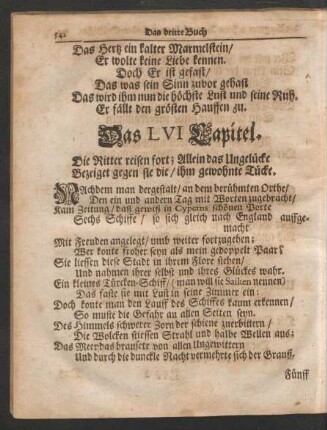 542 Das dritte Buch
Das Hertz ein kalter Marmelstein/
Er wolte keine Liebe kennen.
Doch Er ist gefast/
Das was sein Sinn zuvor gehast
Das wird ihm nun die höchste Lust und seine Ruh.
Er fällt den grösten Hauffen zu.
Das LVI Capitel.
Die Ritter reisen fort; Allein das Ungelücke
Bezeiget gegen sie die/ ihm gewohnte Tücke.
Nachdem man dergestalt/ an dem berühmten Orthe/
Den ein und andern Tag mit Worten zugebracht/
Kam Zeitung/ daß gewiß in Cyperns schönen Porte
Sechs Schiffe/ so sich gleich nach England auffge-
macht
Mit Freuden angelegt/ umb weiter fortzugehen;
Wer konte froher seyn als mein gedoppelt Paar?
Sie liessen diese Stadt in ihrem Flore stehen/
Und nahmen ihrer selbst und ihres Glückes wahr.
Ein kleines Türcken-Schiff/ (man will sie Saiken nennen)
Das faste sie mit Lust in seine Zimmer ein:
Doch konte man den Lauff des Schiffes kaum erkennen/
So muste die Gefahr an allen Seiten seyn.
Des Himmels schwerer Zorn der schiene zuerbittern/
Die Wolcken stiessen Strahl und halbe Wellen aus;
Das Meer das brausete von allen Ungewittern
Und durch die dunckle Nacht vermehrte sich der Grauß.
Fünff